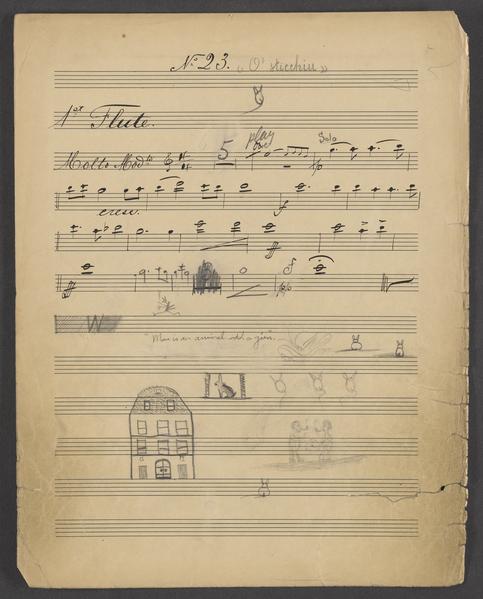 No 23. « O' stecchiu »
1st Flute.
Molto Modto 5 play Solo
fp
cresc. f
ff
ff
W
"Man is an animal